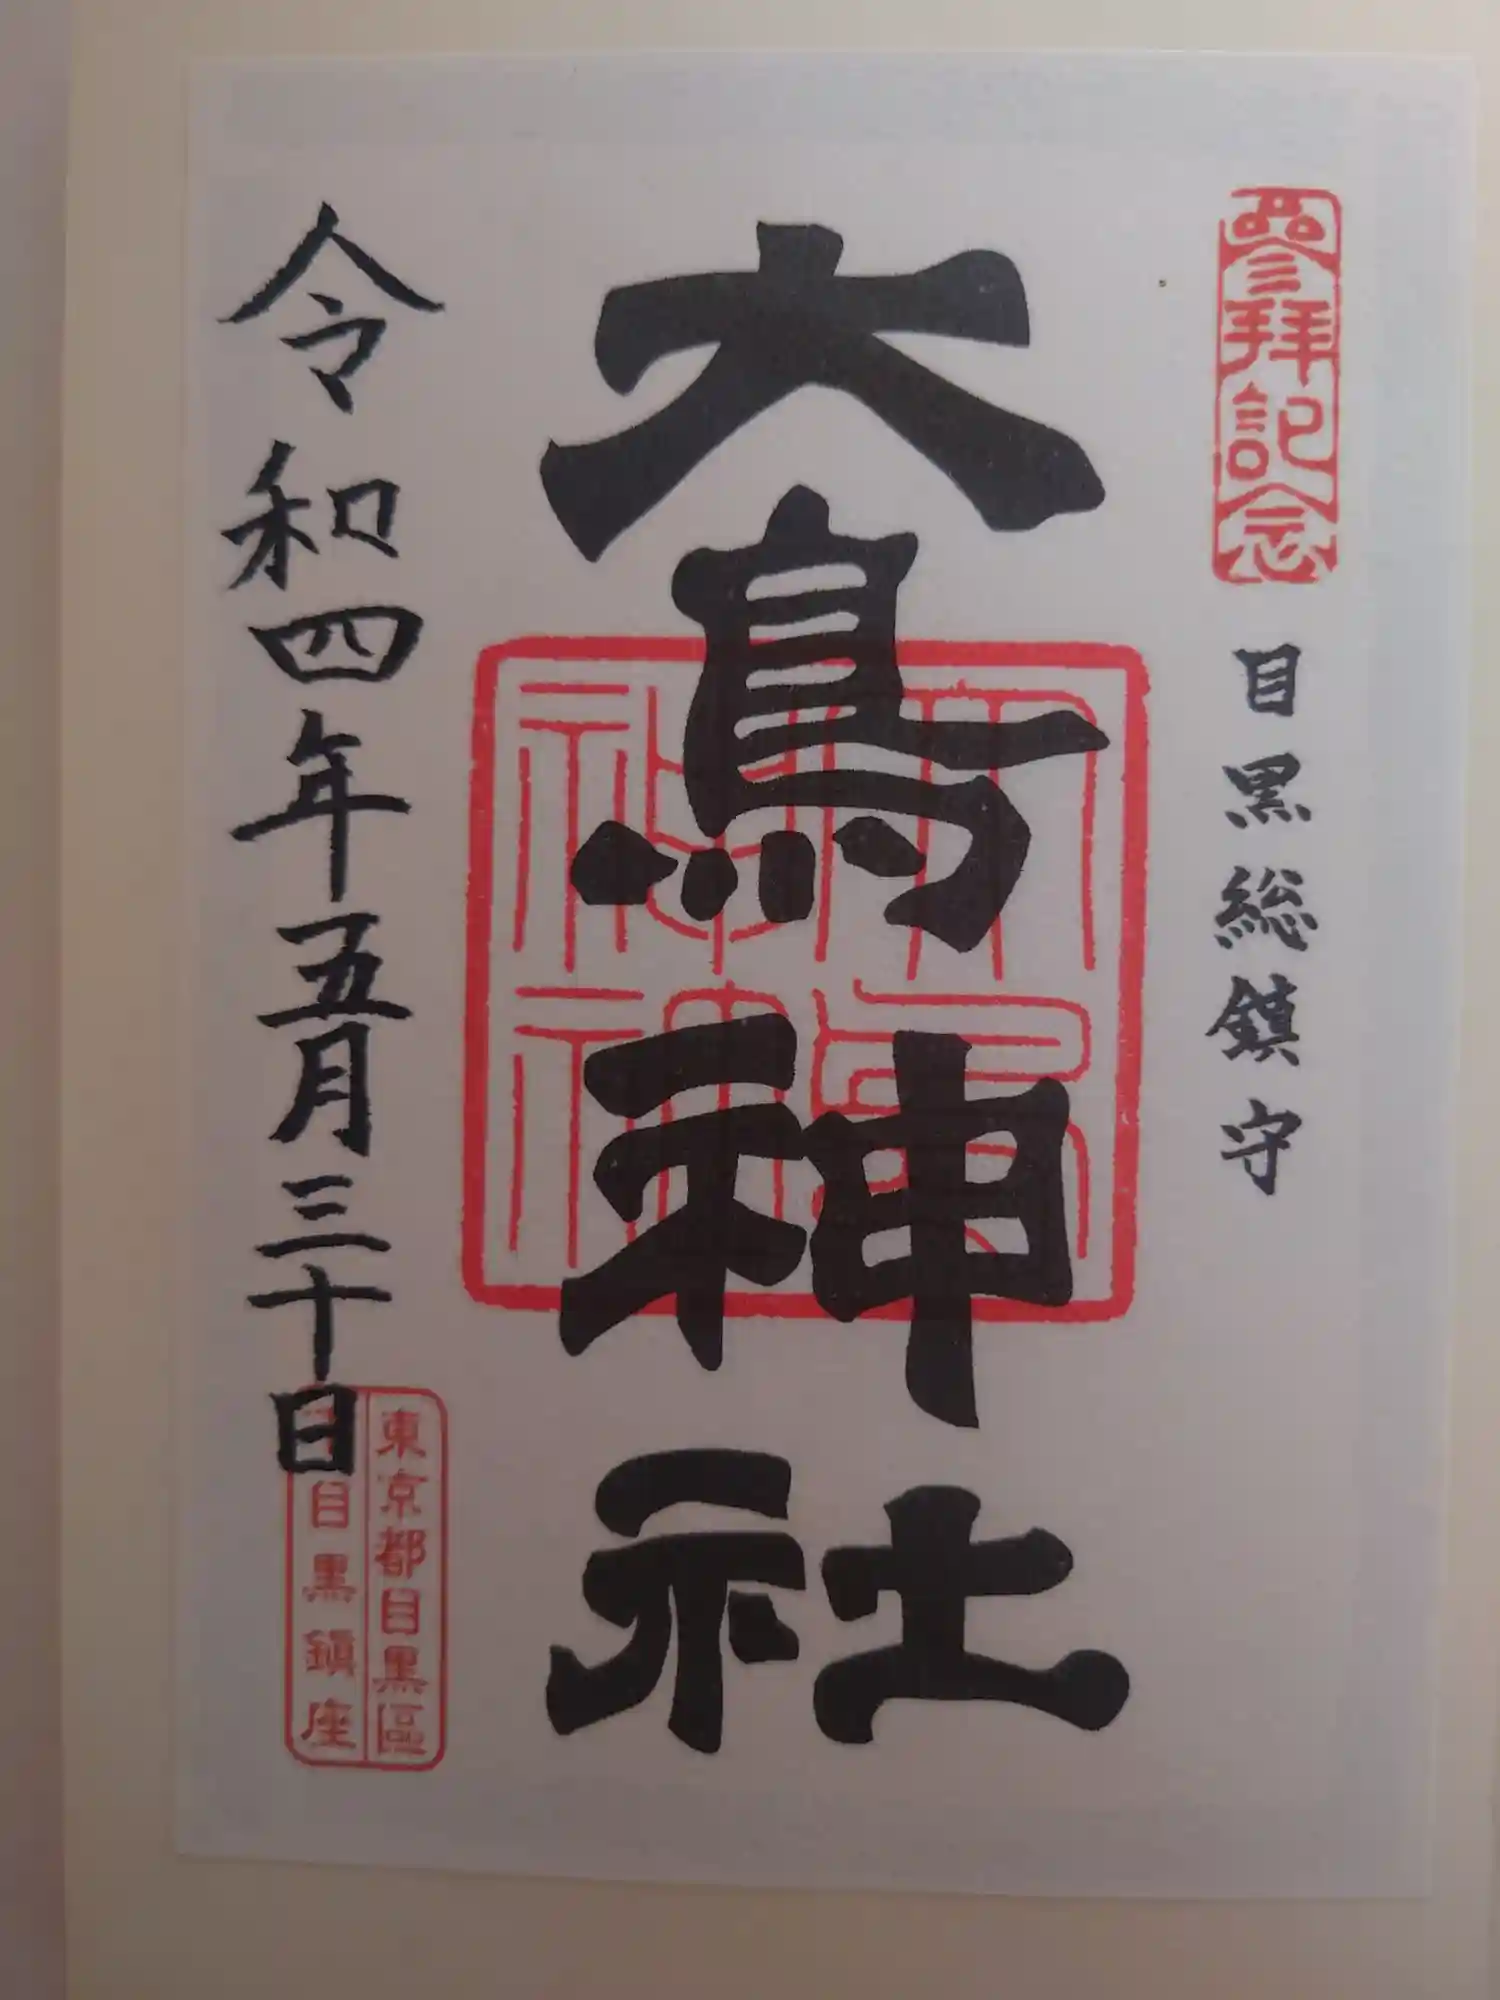 參拜記念
目黒総鎮守
大鳥神社
大鳥神社
令和四年五月三十日
東京都目黒區
下目黒鎮座